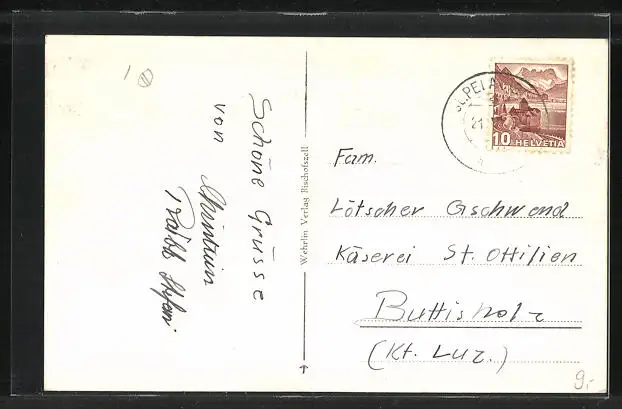 Schöne Grüsse
von
Wehrlin Verlag Bischofszell
St. PELA
21.
10 HELVETIA
Fam.
Lötscher Gschwend
Käserei St. Ottilien
Buttisholz
(Kt. Luz.)
9.-